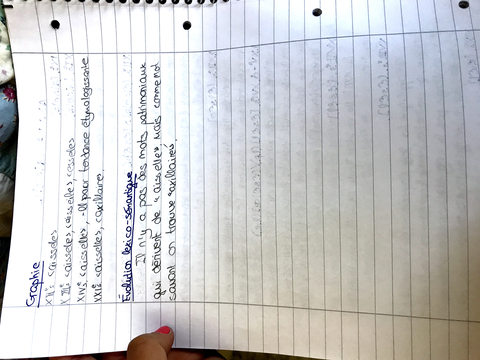 Graphie
XIIe: aisseles
XIIIe: aisseles, aisselles, esseles
XIVe: aisselles, -ll par tendance étymologisante
XXIe: aisselles, axillaire
Évolution lexico-sémantique
Il n'y a pas des mots patrimoniaux
qui dérivent de "aisselle" mais comme mot
savant on trouve "axillaire".